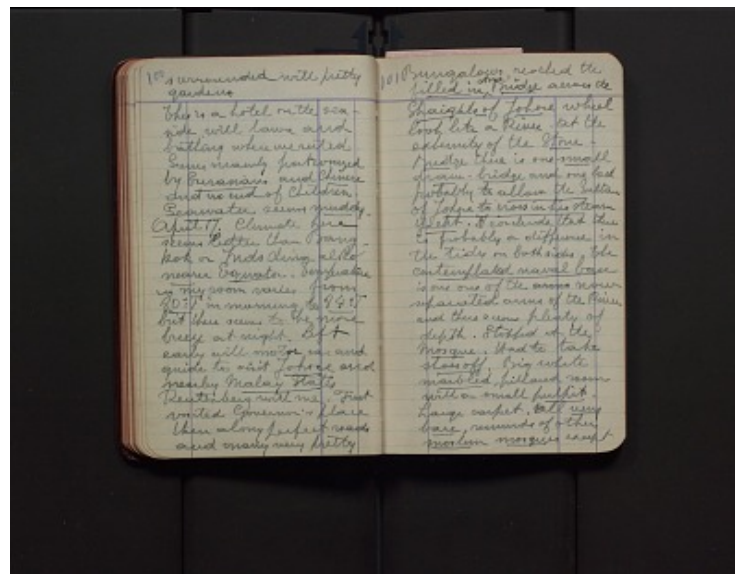 100 surrounded with pretty
gardens
This is a hotel on the sea-
side with lawn and
bathing where we rested
Seems mainly patronized
by Eurasians and Chinese
and no end of Children.
Seawater seems muddy.
April 17. Climate here
seems better than Bang-
kok or Indo China, also
nearer Equator. Temperature
in my room varies from
80° in morning to 84°
but there seems to be more
breeze at night. Left
early with motor car and
guide to visit Johore and
nearby Malay States
with me. First
visited Governor's place
then along perfect roads
and many very pretty
101 Bungalows, reached the
filled in stone Bridge across the
Straights of Johore which
look like a River. At the
extremity of the Stone-
Bridge there is one small
draw-bridge and one
probably to allow the Sultan
of Johore to cross in his steam
yacht. I conclude that there
is probably a difference in
the tides on both sides. The
contemplated naval base
is one of the arms now
separated arms of the River
and there seems plenty of
depth. Stopped at the
Mosque. Had to take
shoes off. Big white
marbled, pillared room
with a small pulpit.
Large carpet. All very
bare, reminds of other
moslem mosques except